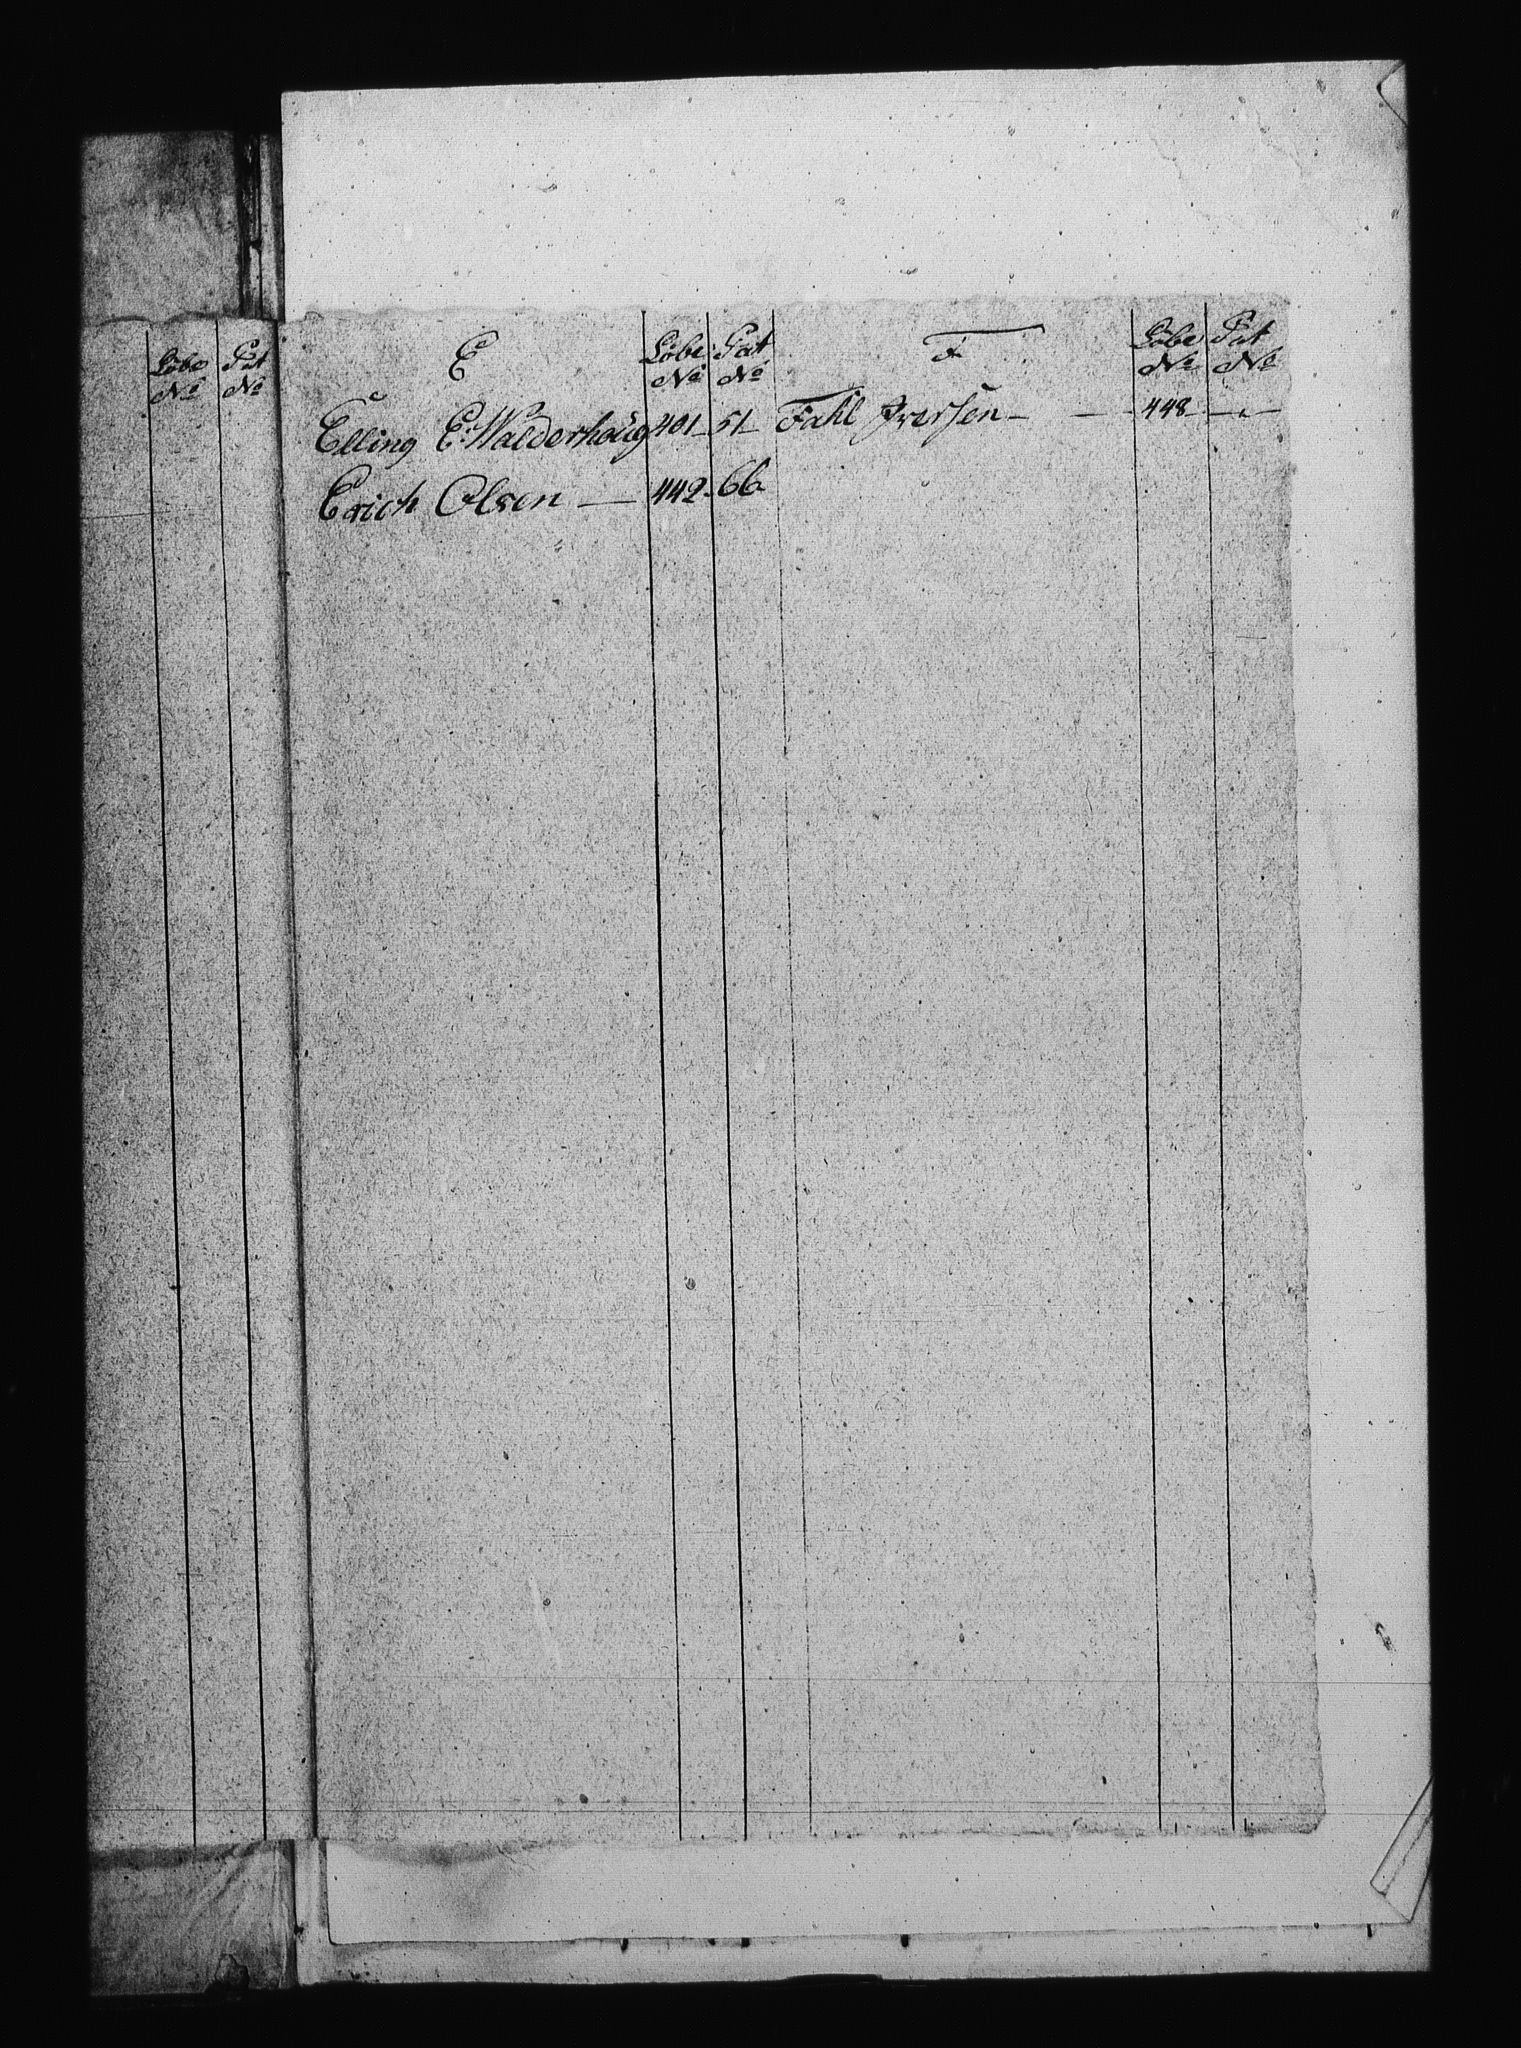 Løbe Pat
No No
E Løbe Pat F Løbe Pat
No No No No
Elling E: Walderhoüg 401 51 Fahl Iversen — — 448 — " —
Erich Olsen — 442 66